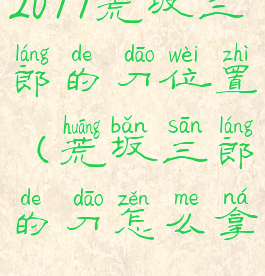 2077荒坂三
láng de dāo wèi zhì
郎的刀位置
huāng bǎn sān láng
（荒坂三郎
de dāo zěn me ná
的刀怎么拿